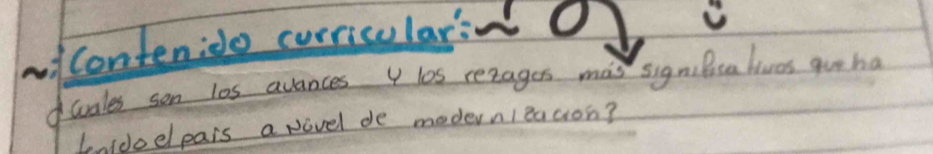 ~¡Contenido curricular!:~
¿Cuales son los avances y los rezagos más significativos que ha
tenido el país a Nivel de modernización?